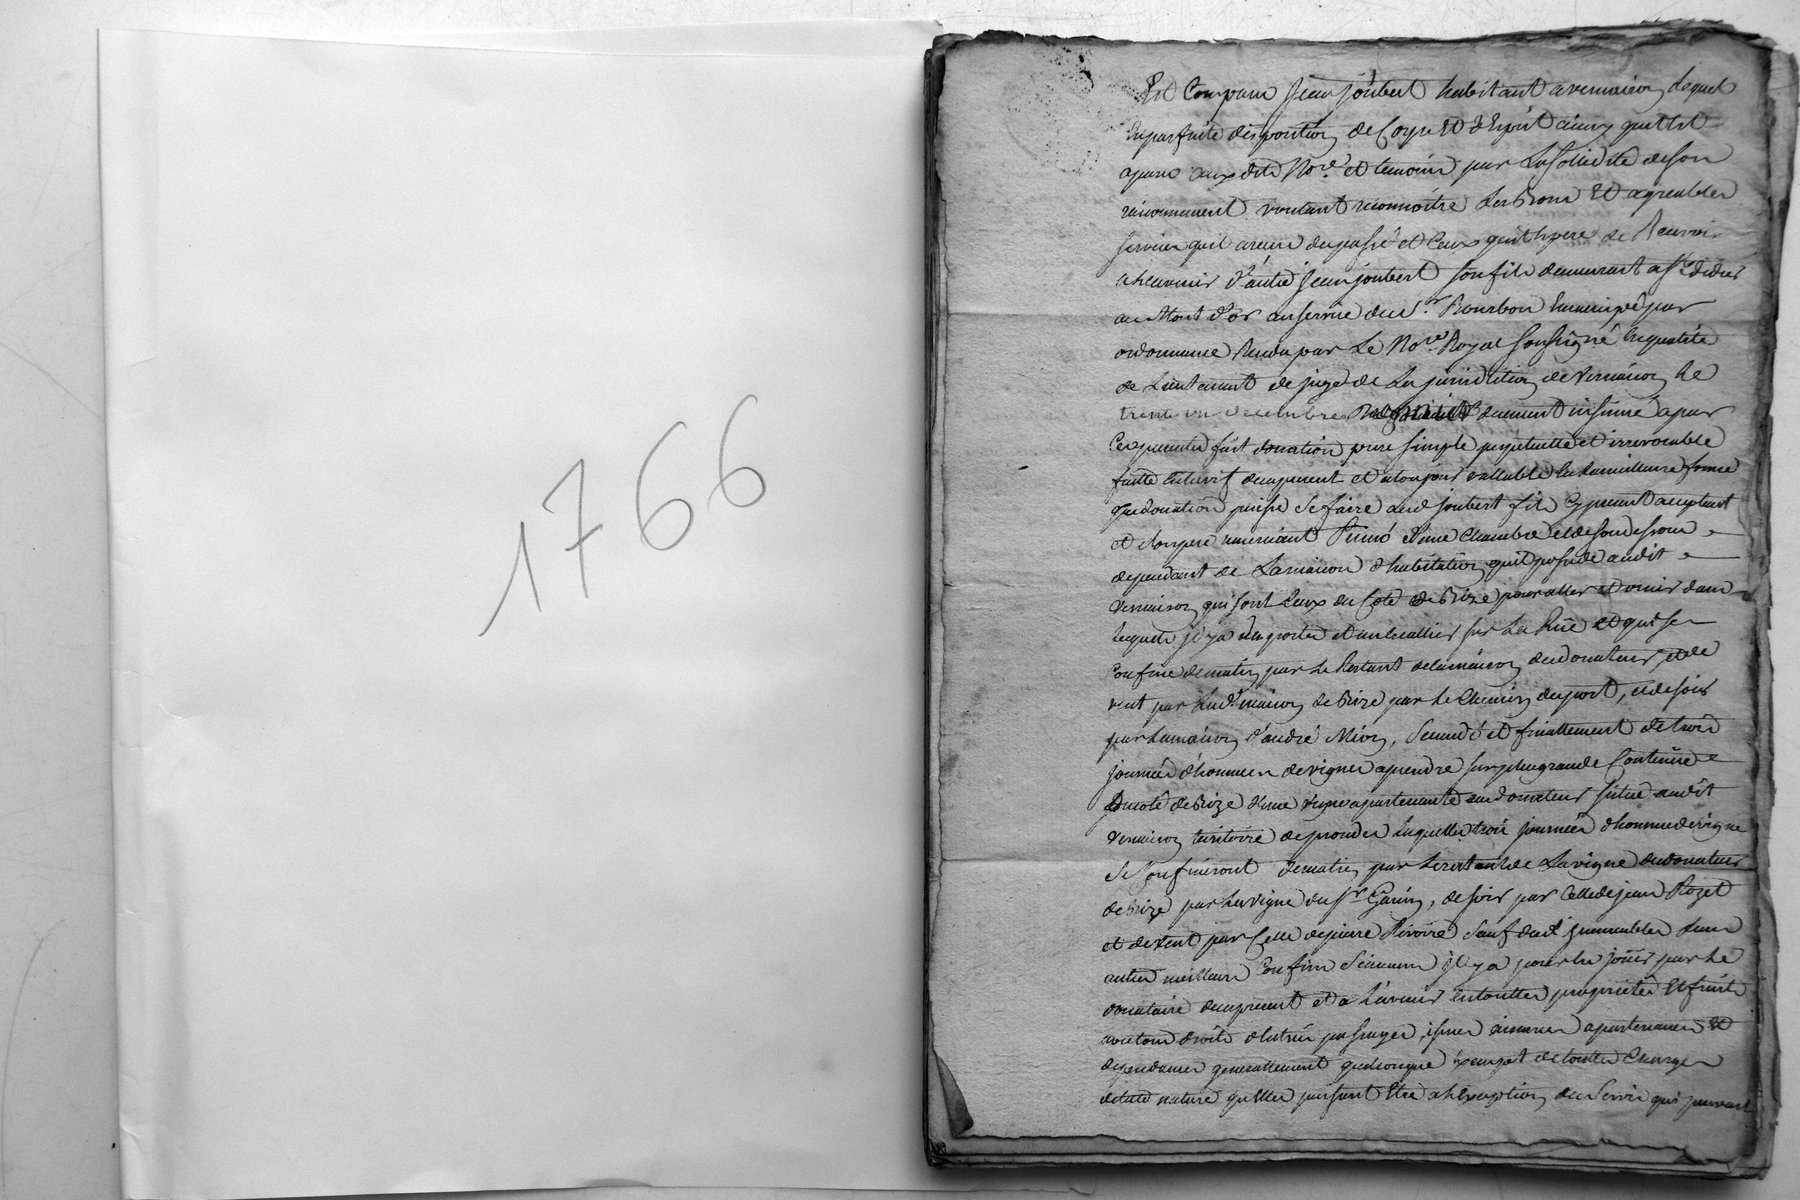 1766
Est Comparu Jean joubert habitant a vernaison lequel
En parfaite disposition de Corps Et d'Esprit ainsy quil Est
aparu aux dits Nore. et temoins par La solidité de son
raisonnement voulant reconnoitre Les Bons Et agreables
services quil a reçu du passé et Ceux quil Espere de Recevoir
a Lavenir d'autre jean joubert son fils demeurant a St. didier
au Mont d'or au service du sr. Bourbon Emancipé par
ordonnance Rendu par Le Nore. Royal soussigné En qualité
de Lieutenant de juge de La jurisdiction de vernaison Le
trente un decembre dument insinué a par
Ces presentes fait donation pure simple perpetuelle et irrevocable
faite Entrevifs des a present et a toujours vallable En La meilleure forme
que donation puisse se faire aud joubert fils Cy present acceptant
et son pere remerciant Primo d'une Chambre et de son dessous
dependant de La maison d'habitation quil possede audit
vernaison qui sont Ceux du Coté de Bize pour aller et venir dans
Lequels il y a une porte et un Escallier sur La Rüe et qui se
Confine de matin par Le Restant de la maison du donateur, et de
vent par Lad. maison de Bize par Le Chemin du port, et de soir
par La maison d'andré Mion, Secundo et finallement de trois
journées d'hommes de vignes a prendre sur plus grande Contenüe
Du coté de Bize d'une vigne apartenante au donateur située audit
vernaison territoire de prondes Lesquelles trois journées d'homme de vigne
se Confineront de matin par Le restant de La vigne du donateur
de Bize par La vigne du Sr Garin, de soir par Celle de jean Rozet
et de vent par Celle de pierre Rivoire sauf dud. jmmeubles Leurs
autres meilleurs Confins si aucuns il y a pour En joüir par Le
donataire des a present et a Lavenir En toutte proprieté Et fruits
avec tous droits d'Entrée passages, issues aisances apartenances Et
dependances generallement quelconque Exempt de toutte Charges
de toute nature quelles puissent Etre a L'Exception du Servis qui peuvent